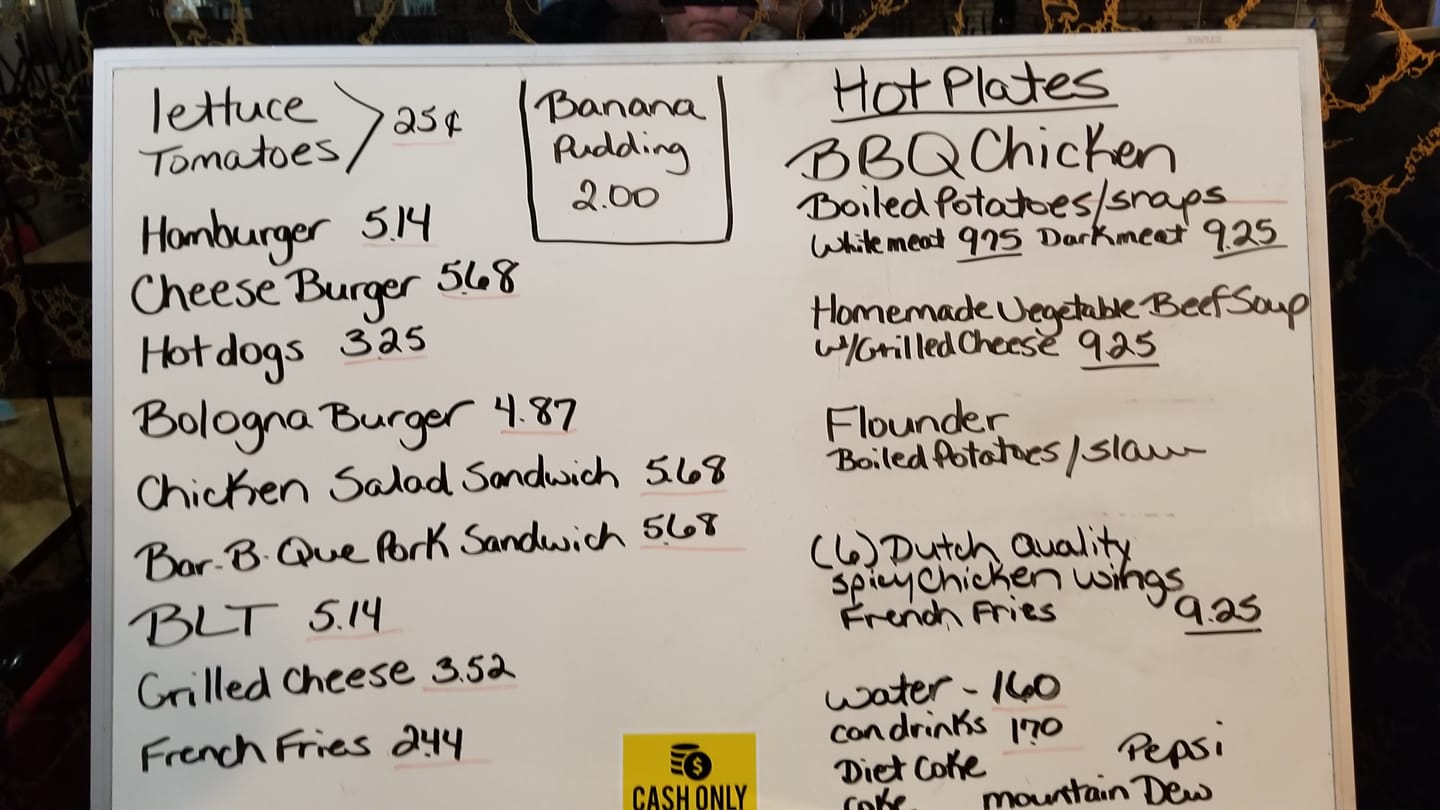 lettuce
Tomatoes > 25¢
Hamburger 5.14
Cheese Burger 5.68
Hotdogs 3.25
Bologna Burger 4.87
Chicken Salad Sandwich 5.68
Bar-B-Que Pork Sandwich 5.68
BLT 5.14
Grilled Cheese 3.52
French Fries 2.44
Banana
Pudding
2.00
CASH ONLY
Hot Plates
BBQ Chicken
Boiled Potatoes/snaps
White meat 9.75 Dark meat 9.25
Homemade Vegetable Beef Soup
w/Grilled Cheese 9.25
Flounder
Boiled Potatoes/slaw
(6) Dutch Quality
spicy chicken wings
French Fries 9.25
water - 1.60
can drinks 1.70
Diet Coke Pepsi
Coke mountain Dew
STAPLES